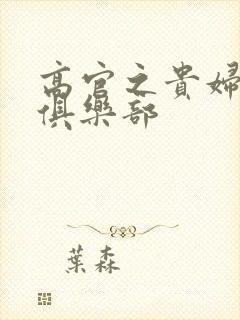 高官之貴婦
俱樂部
葉森